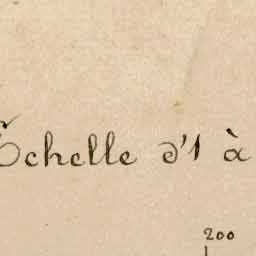 Échelle d'1 à
200